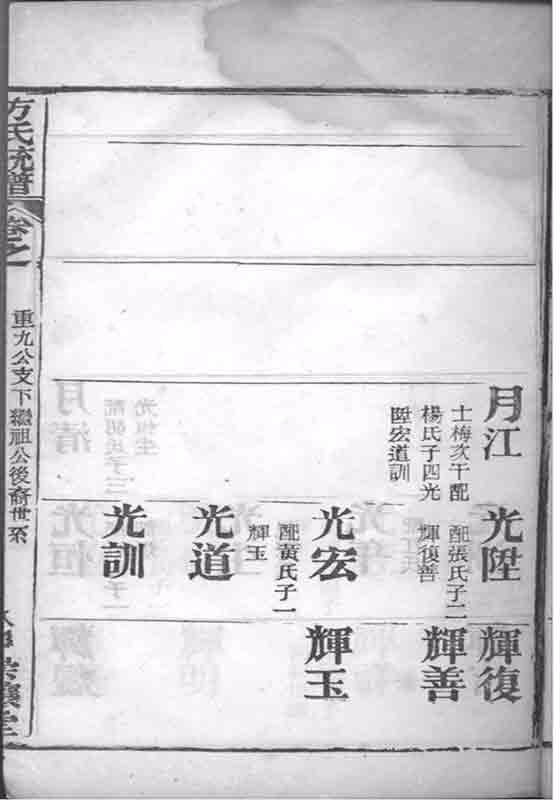 月江
士梅次子配
楊氏子四光
陞宏道訓
光陞
配張氏子二
輝復善
光宏
配黃氏子一
輝玉
光道
光訓
輝復
輝善
輝玉
方氏統譜
卷之一
重九公支下繼祖公後裔世系